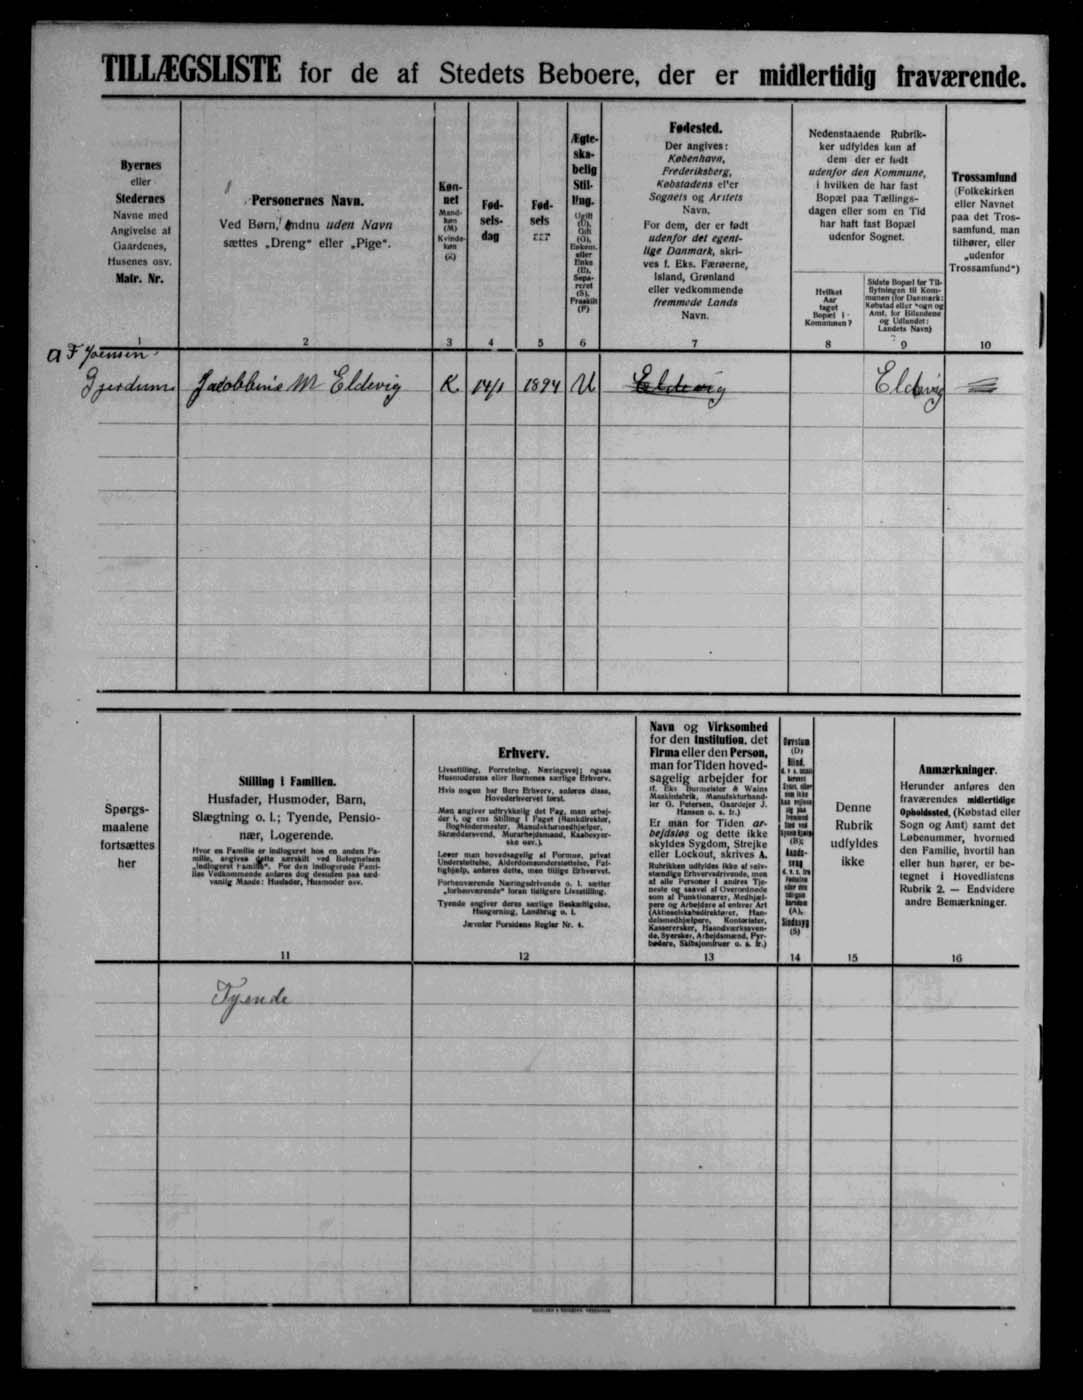 TILLÆGSLISTE for de af Stedets Beboere, der er midlertidig fraværende.
Byernes
eller
Stedernes
Navne med
Angivelse af
Gaardenes,
Husenes osv.
Matr. Nr.
Personernes Navn.
Ved Børn, endnu uden Navn
sættes „Dreng“ eller „Pige“.
Køn-
net
Mand-
køn
(M)
Kvinde-
køn
(K)
Fød-
sels-
dag
Fød-
sels
aar
Ægte-
ska-
belig
Stil-
ling.
Ugift
(U),
Gift
(G),
Enkem.
eller
Enke
(E),
Sepa-
reret
(S),
Fraskilt
(F)
Fødested.
Der angives:
København,
Frederiksberg,
Købstadens eller
Sognets og Amtets
Navn.
For dem, der er født
udenfor det egent-
lige Danmark, skri-
ves f. Eks. Færøerne,
Island, Grønland
eller vedkommende
fremmede Lands
Navn.
Nedenstaaende Rubrik-
ker udfyldes kun af
dem der er født
udenfor den Kommune,
i hvilken de har fast
Bopæl paa Tællings-
dagen eller som en Tid
har haft fast Bopæl
udenfor Sognet.
Hvilket
Aar
taget
Bopæl i
Kommunen?
Sidste Bopæl før Til-
flytningen til Kom-
munen (for Danmark:
Købstad eller Sogn og
Amt, for Bilandene
og Udlandet:
Landets Navn)
Trossamfund
(Folkekirken
eller Navnet
paa det Tros-
samfund, man
tilhører, eller
„udenfor
Trossamfund“)
1 2 3 4 5 6 7 8 9 10
a F Joensen
Gjerdum Jacobbine M Eldevig K 14/1 1894 U Eldevig Eldevig
Spørgs-
maalene
fortsættes
her
Stilling i Familien.
Husfader, Husmoder, Barn,
Slægtning o. l.; Tyende, Pensio-
nær, Logerende.
Hvor en Familie er indlogeret hos en anden Fa-
milie, angives dette særskilt ved Betegnelsen
„indlogeret Familie“. For den indlogerede Fami-
lies Vedkommende anføres dog desuden paa sæd-
vanlig Maade: Husfader, Husmoder osv.
Erhverv.
Livsstilling, Forretning, Næringsvej; ogsaa
Husmoderens eller Børnenes særlige Erhverv.
Hvis nogen har flere Erhverv, anføres disse,
Hovederhvervet først.
Man angiver udtrykkelig det Fag, man arbej-
der i, og ens Stilling i Faget (Bankdirektør,
Bogbindermester, Manufakturmedhjælper,
Skræddersvend, Murarbejdsmand, Kaabesyer-
ske osv.).
Lever man hovedsagelig af Formue, privat
Understøttelse, Alderdomsunderstøttelse, Fat-
tighjælp, anføres dette, men tillige Erhvervet.
Forhenværende Næringsdrivende o. l. sætter
„forhenværende“ foran tidligere Livsstilling.
Tyende angiver deres særlige Beskæftigelse,
Husgerning, Landbrug o. l.
Jævnfør Forsidens Regler Nr. 4.
Navn og Virksomhed
for den Institution, det
Firma eller den Person,
man for Tiden hoved-
sagelig arbejder for
(f. Eks Burmeister & Wains
Maskinfabrik, Manufakturhand-
ler O. Petersen, Gaardejer J.
Hansen o. s. fr.)
Er man for Tiden ar-
bejdsløs og dette ikke
skyldes Sygdom, Strejke
eller Lockout, skrives A.
Rubrikken udfyldes ikke af selv-
stændige Erhvervsdrivende, men
af alle Personer i andres Tje-
neste og saavel af Overordnede
som af Funktionærer, Medhjæl-
pere og Arbejdere af enhver Art
(Aktieselskabsdirektører, Han-
delsmedhjælpere, Kontorister,
Kasserersker, Haandværkssven-
de, Syersker, Arbejdsmænd, Fyr-
bødere, Skibsjomfruer o. s. fr.)
Døvstum
(D)
Blind,
(B);
Aands-
svag
(A),
Sindssyg
(S)
Denne
Rubrik
udfyldes
ikke
Anmærkninger.
Herunder anføres den
fraværendes midlertidige
Opholdssted, (Købstad eller
Sogn og Amt) samt det
Løbenummer, hvormed
den Familie, hvortil han
eller hun hører, er be-
tegnet i Hovedlistens
Rubrik 2. — Endvidere
andre Bemærkninger.
11 12 13 14 15 16
Tyende